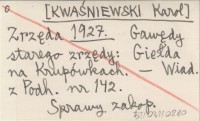 [KWAŚNIEWSKI Karol]
Zrzęda 1927. Gawędy
starego zrzędy: Giełda
na Krupówkach. — Wiad.
z Podh. nr 142.
Sprawy zakop.